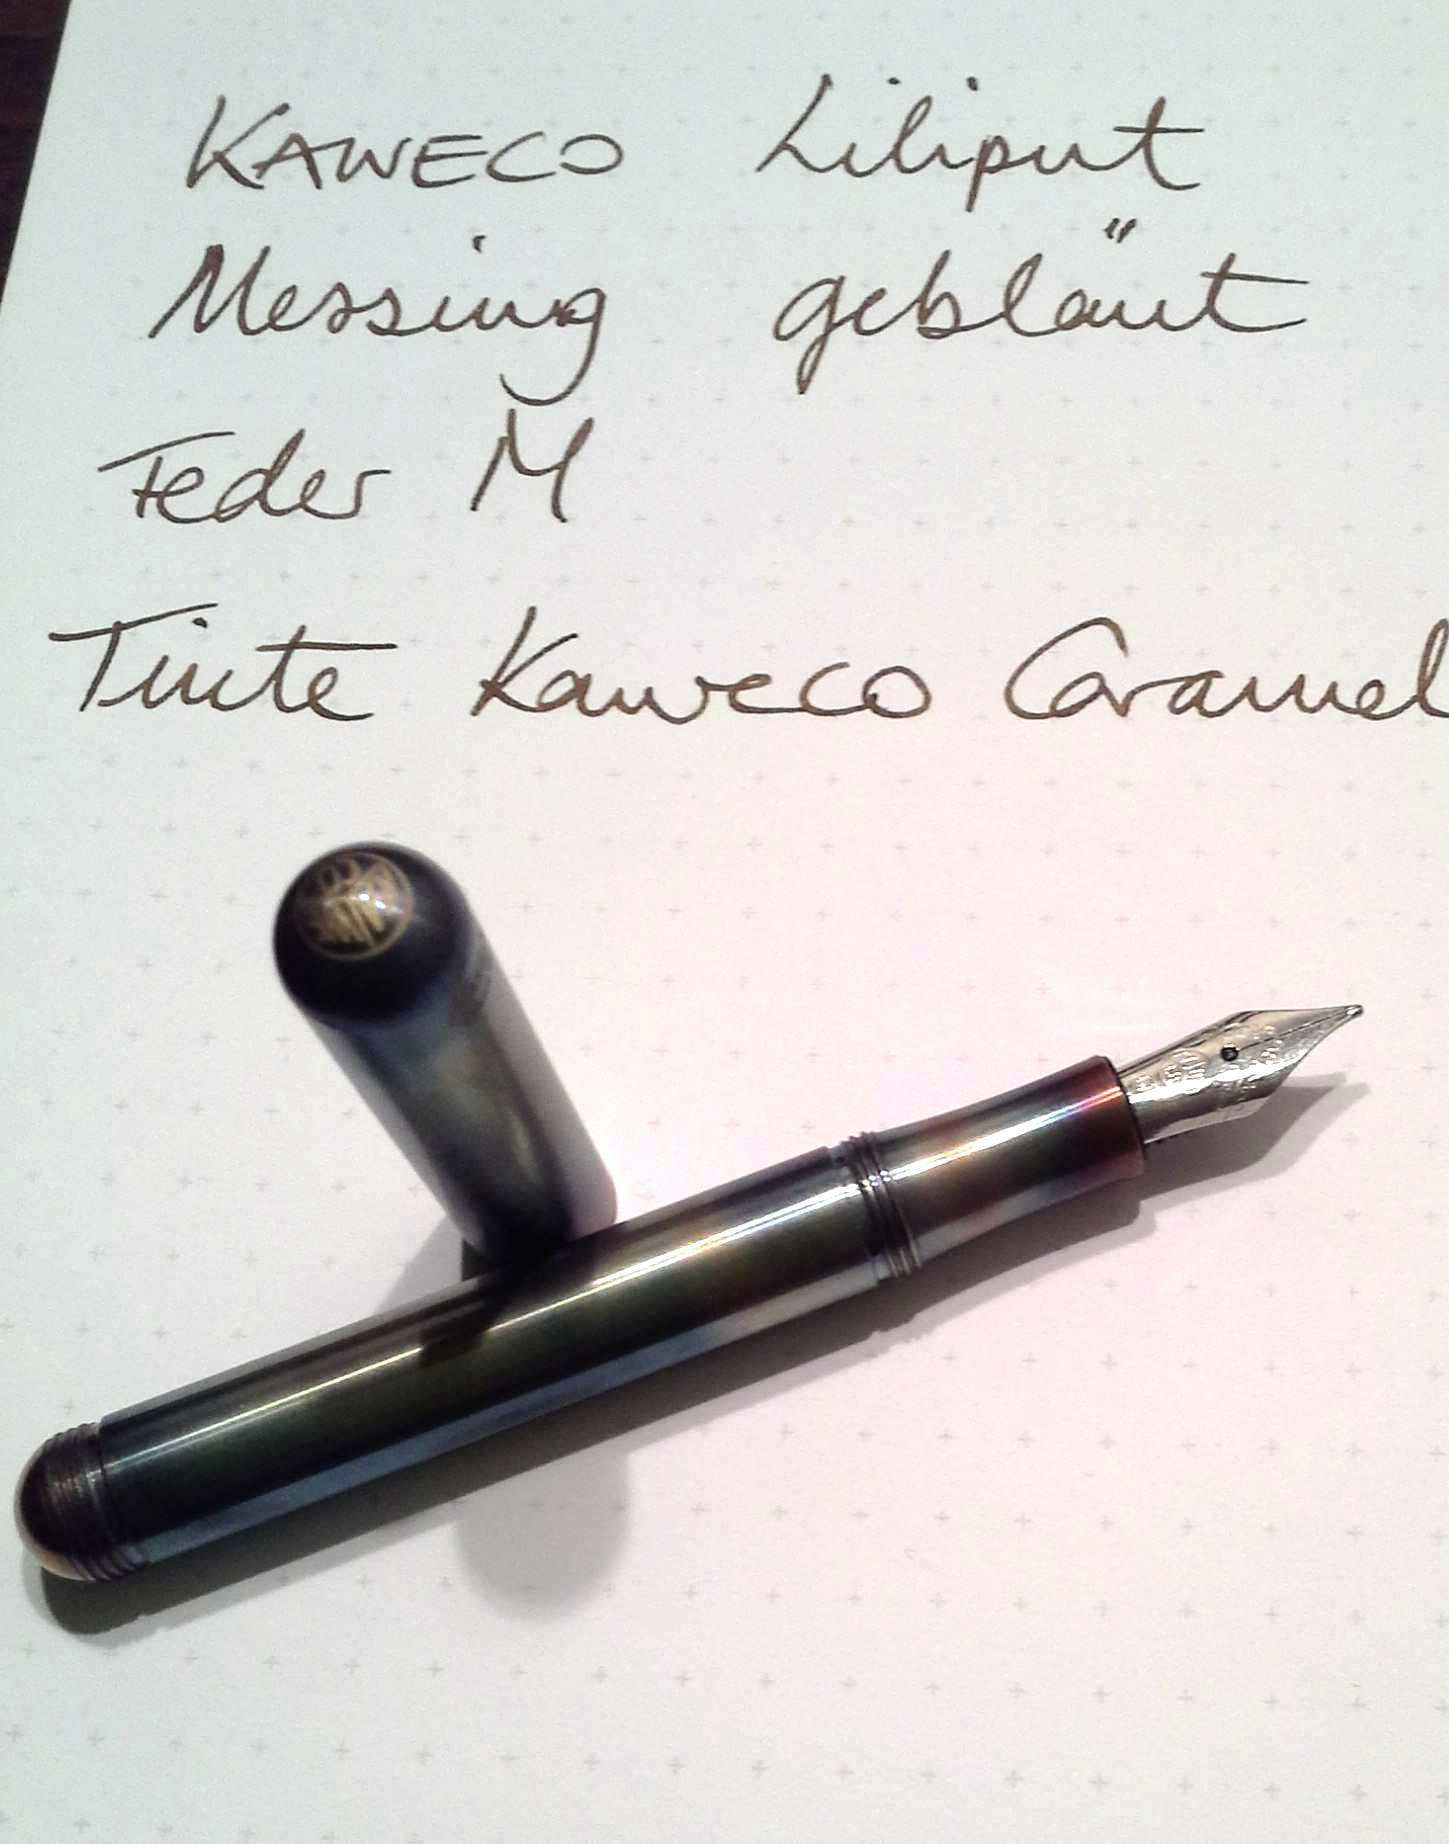 KAWECO Liliput
Messing gebläut
Feder M
Tinte Kaweco Caramel